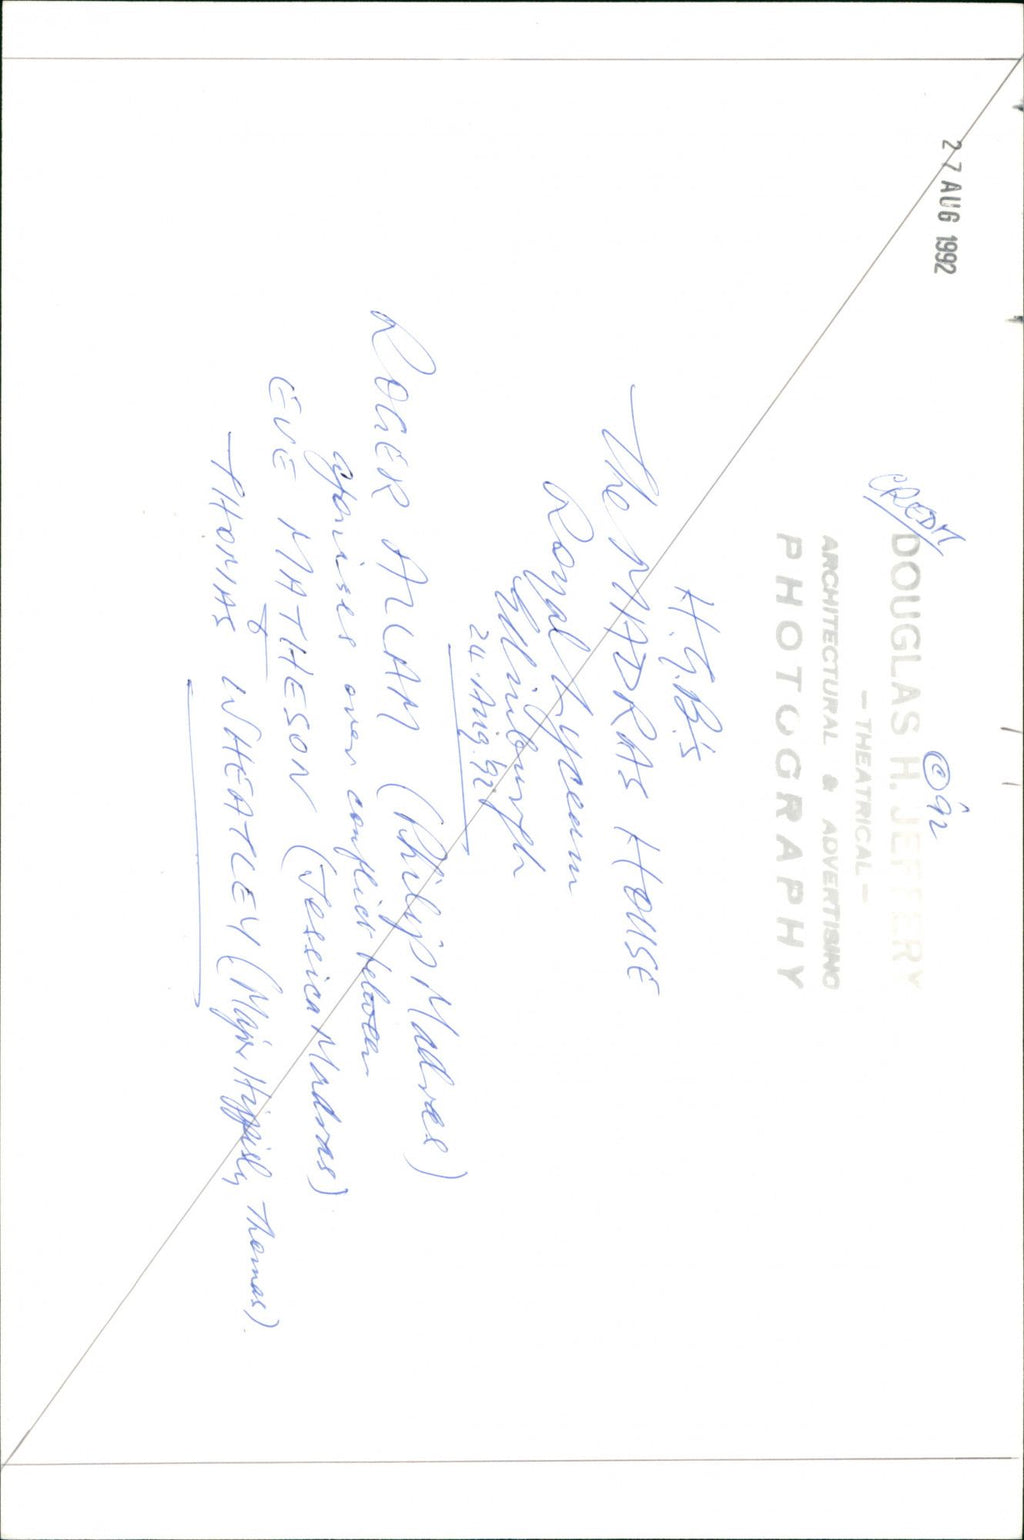 27 AUG 1992
CREDIT
© '92
DOUGLAS H. JEFFERY
— THEATRICAL —
ARCHITECTURAL & ADVERTISING
PHOTOGRAPHY
H.G.B.'s
The MADRAS HOUSE
Royal Lyceum
Edinburgh
24. Aug. '92
ROGER ALLAM (Philip Madras)
agonises over conflict between
EVE MATHESON (Jessica Madras)
&
THOMAS WHEATLEY (Major Hippisly Thomas).